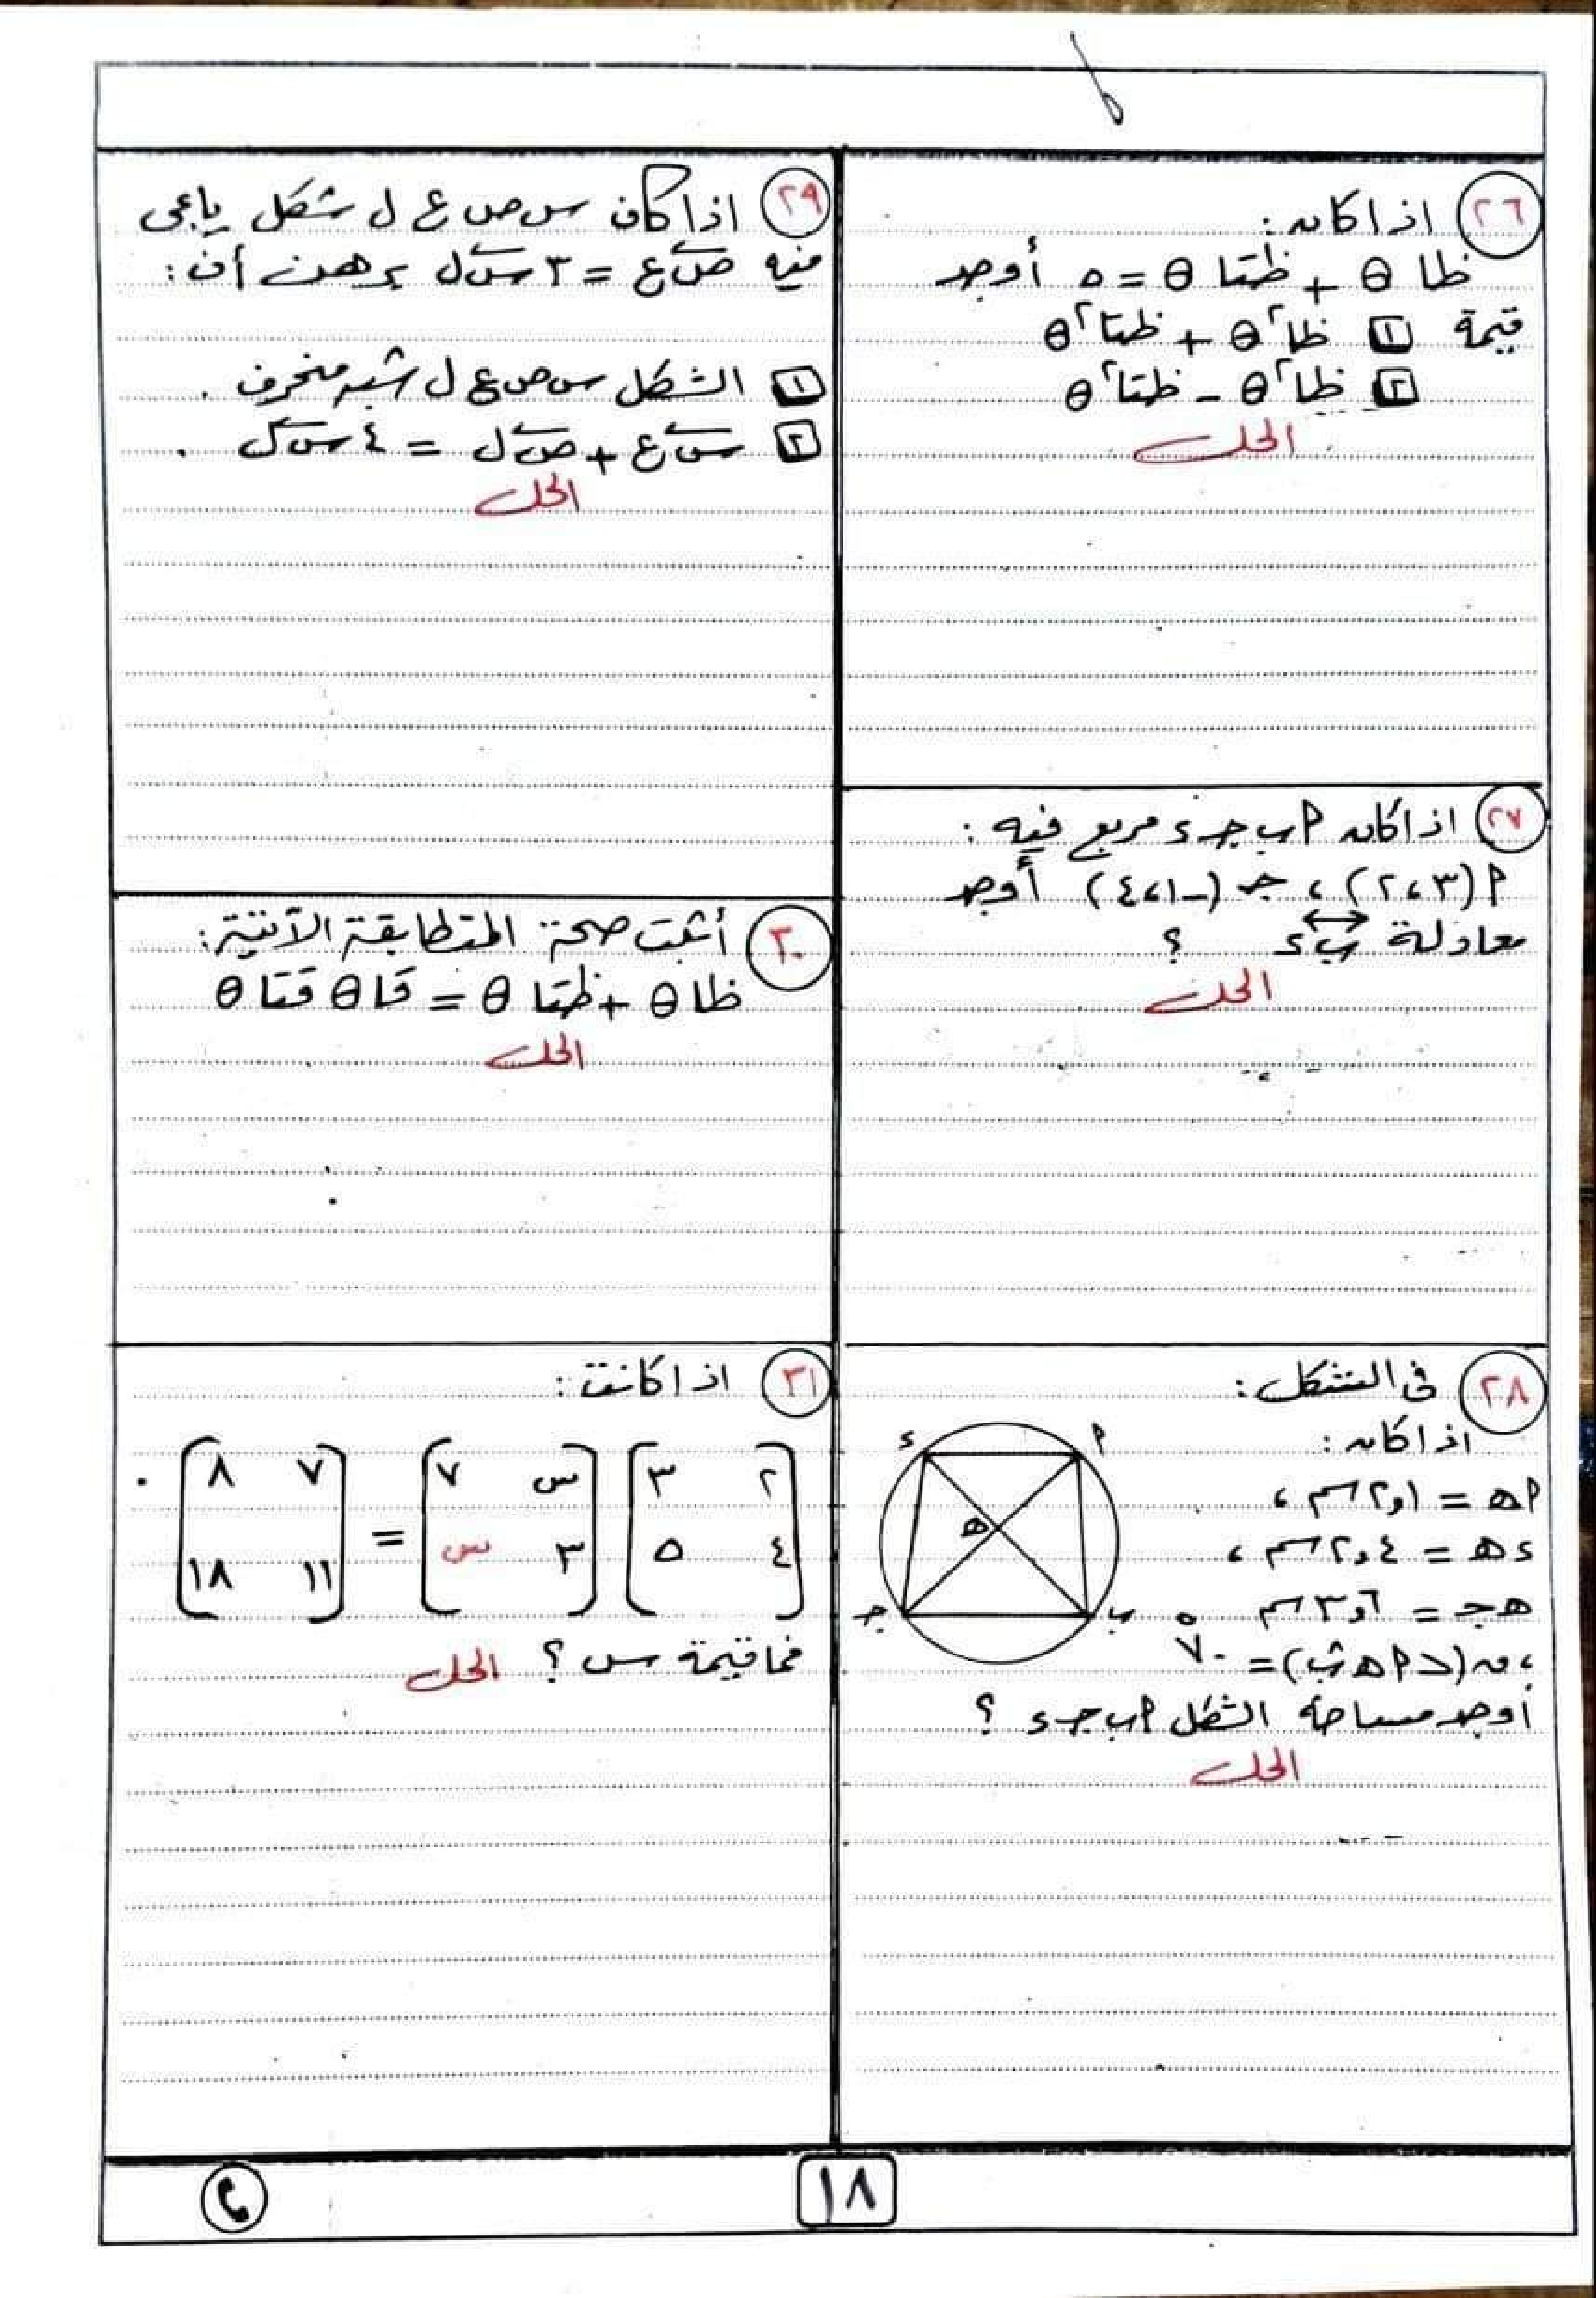 ٢٦ اذا كان :
ظا θ + ظتا θ = ٥ أوجد
قيمة ١ ظا٢ θ + ظتا٢ θ
٢ ظا٢ θ - ظتا٢ θ
الحل
٢٧ اذا كان م ب جـ ء مربع فيه :
م (٣ ، ٢) ، جـ (-١ ، ٤) أوجد
معادلة ب ء ؟
الحل
٢٨ فى الشكل :
اذا كان :
م هـ = ١و٢ سم ،
ء هـ = ٤و٢ سم ،
هـ جـ = ٦و٣ سم
، ق (> م هـ ب) = ٧٠°
أوجد مساحة الشكل م ب جـ ء ؟
الحل
ء م
هـ
جـ ب
٢٩ اذا كان س ص ع ل شكل باعى
فيه ص ع = ٣ س ل برهن أن :
١ الشكل س ص ع ل شبه منحرف .
٢ س ع + ص ل = ٤ س ل .
الحل
٣٠ أثبت صحة المتطابقة الآتية :
ظا θ + ظتا θ = قا θ قتا θ
الحل
٣١ اذا كانت :
٢ ٣ س ٧ ٧ ٨ .
=
٤ ٥ ٣ س ١١ ١٨
فما قيمة س ؟ الحل
١٨